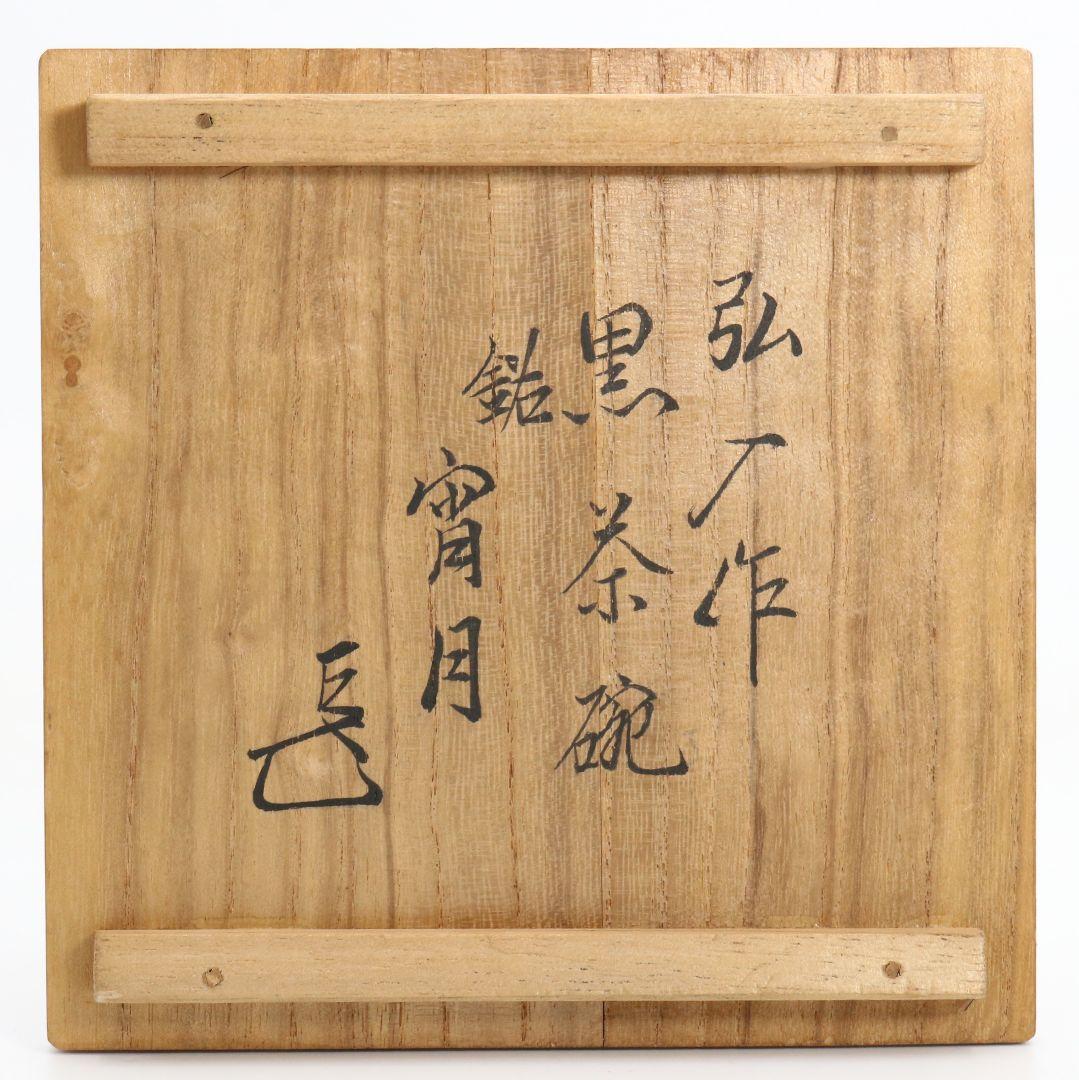 弘入作
黒茶碗
銘
宵月